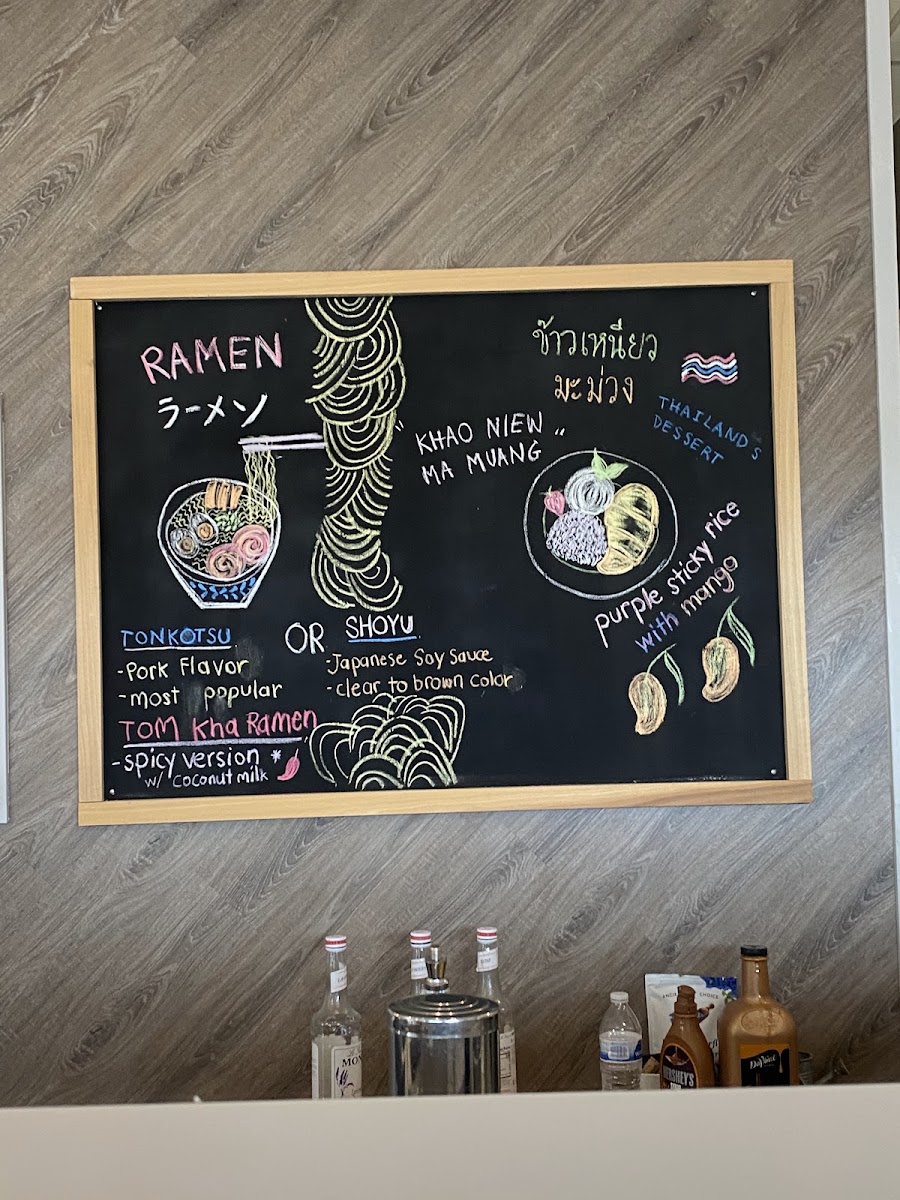 RAMEN
ラーメン
TONKOTSU
-Pork Flavor
-most popular
OR
SHOYU
-Japanese Soy Sauce
-clear to brown color
TOM Kha Ramen
-spicy version *
w/ coconut milk
ข้าวเหนียว
มะม่วง
"KHAO NIEW
MA MUANG"
THAILAND'S
DESSERT
purple sticky rice
with mango
HERSHEY'S